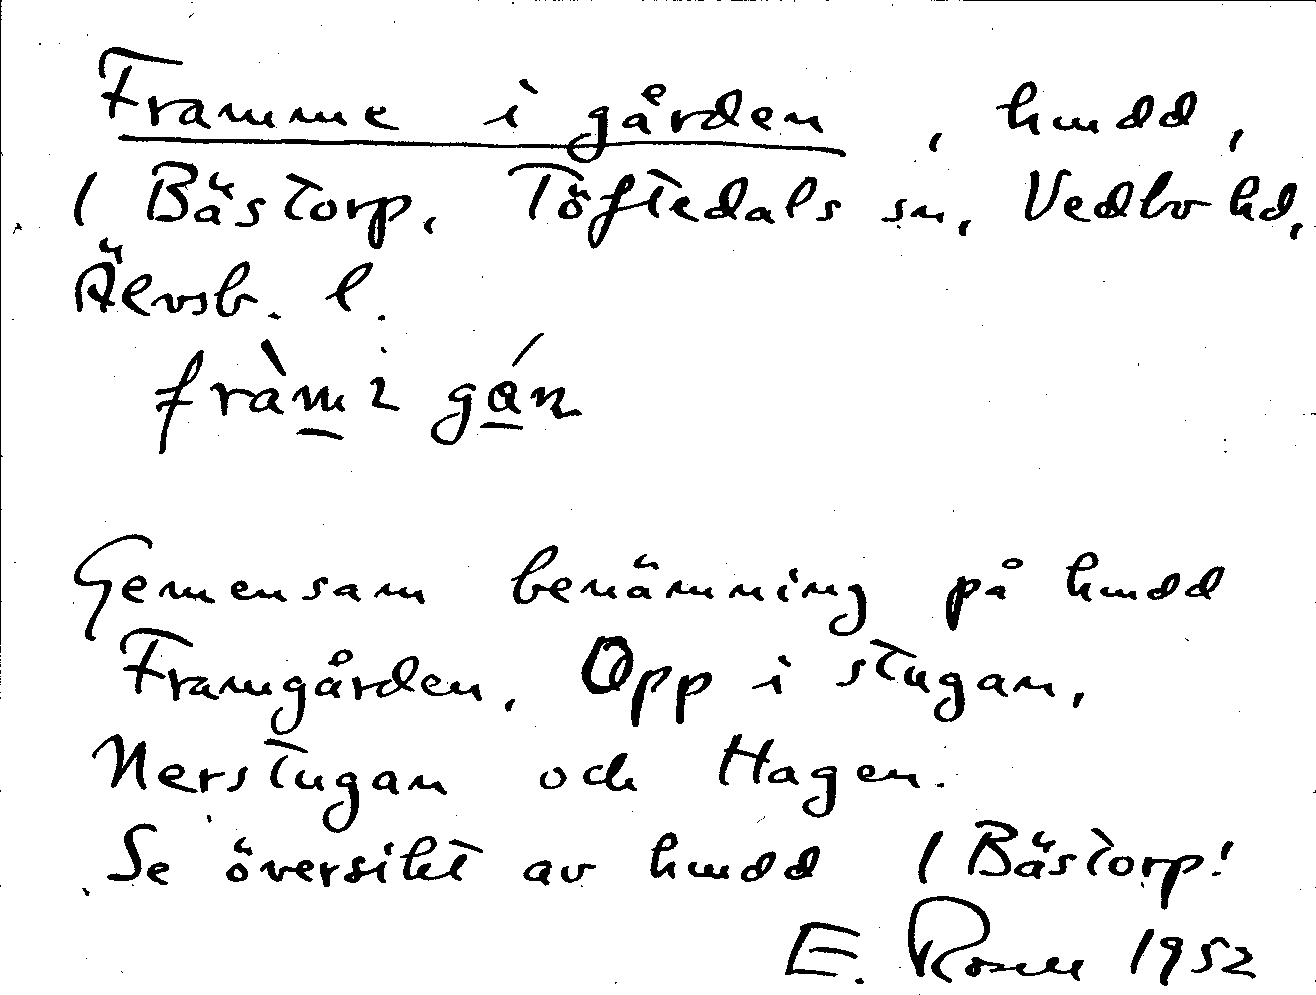 Framme i gården, hmdd,
1 Bästorp, Töftedals sn, Vedbo hd,
Älvsb. l.
fràm i gán
Gemensam benämning på hmdd
Framgården, Opp i stugan,
Nerstugan och Hagen.
Se översikt av hmdd 1 Bästorp!
E. Rosell 1952